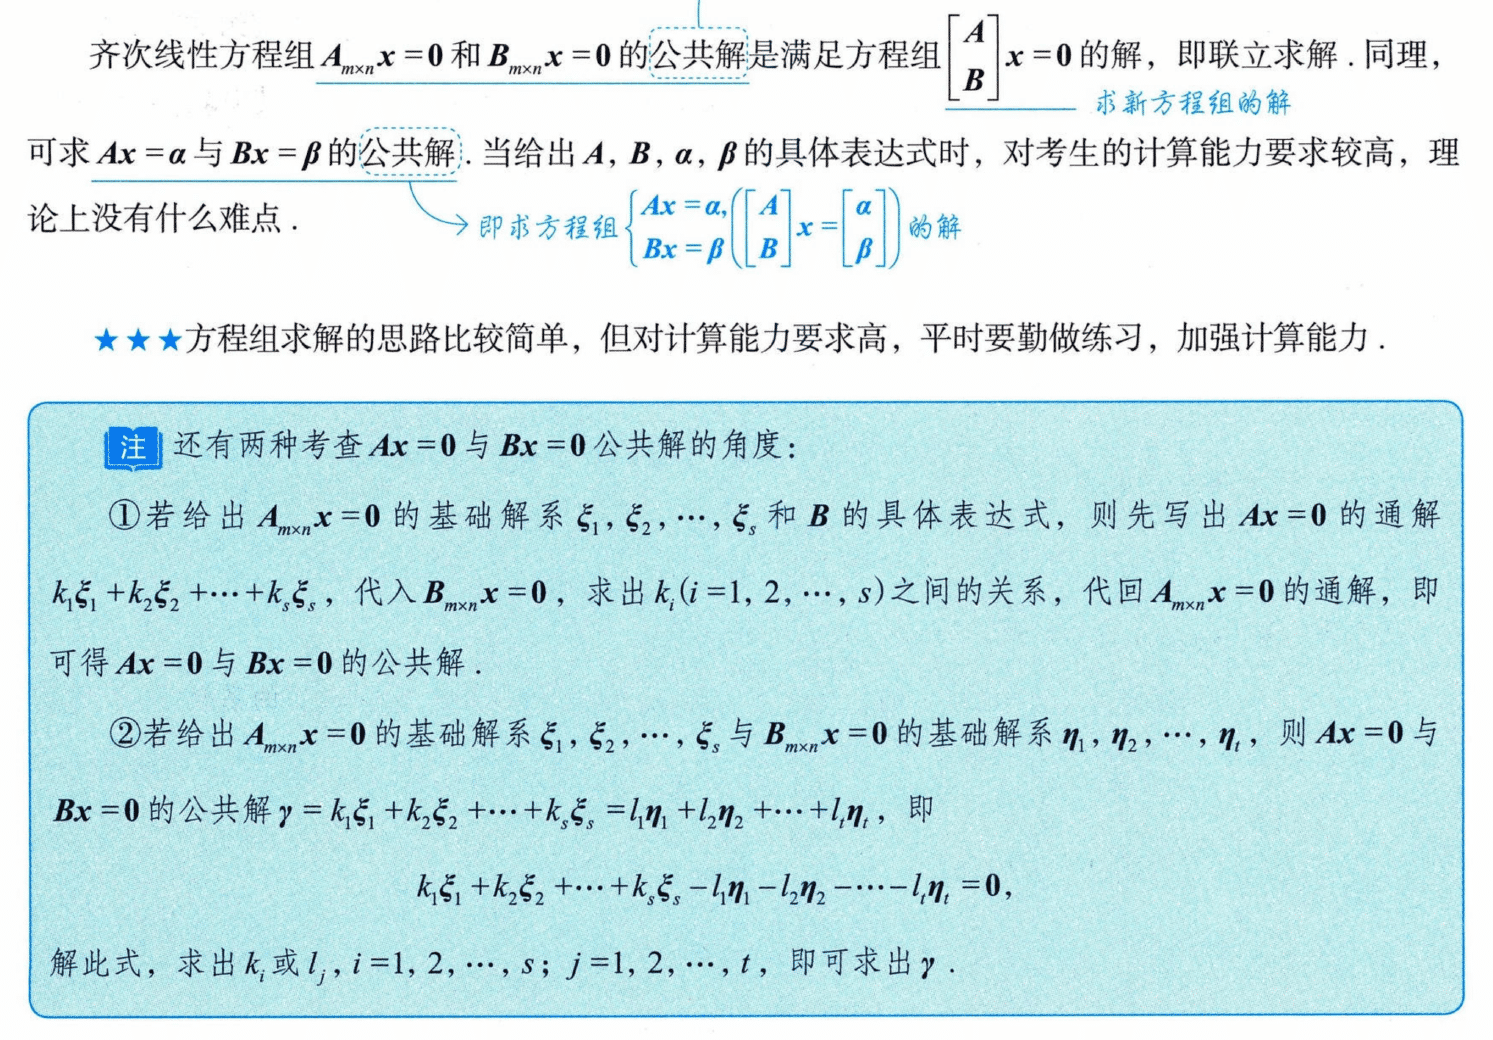 齐次线性方程组 Aₘₓₙx = 0 和 Bₘₓₙx = 0 的公共解是满足方程组 [A B] x = 0 的解，即联立求解 . 同理，
求新方程组的解
可求 Ax = α 与 Bx = β 的公共解 . 当给出 A, B, α, β 的具体表达式时，对考生的计算能力要求较高，理
论上没有什么难点 .
即求方程组 { Ax = α, Bx = β ([A B] x = [α β]) 的解
★★★方程组求解的思路比较简单，但对计算能力要求高，平时要勤做练习，加强计算能力 .
注 还有两种考查 Ax = 0 与 Bx = 0 公共解的角度：
①若给出 Aₘₓₙx = 0 的基础解系 ξ₁, ξ₂, ⋯, ξₛ 和 B 的具体表达式，则先写出 Ax = 0 的通解
k₁ξ₁ + k₂ξ₂ + ⋯ + kₛξₛ，代入 Bₘₓₙx = 0，求出 kᵢ(i = 1, 2, ⋯, s)之间的关系，代回 Aₘₓₙx = 0 的通解，即
可得 Ax = 0 与 Bx = 0 的公共解 .
②若给出 Aₘₓₙx = 0 的基础解系 ξ₁, ξ₂, ⋯, ξₛ 与 Bₘₓₙx = 0 的基础解系 η₁, η₂, ⋯, ηₜ，则 Ax = 0 与
Bx = 0 的公共解 γ = k₁ξ₁ + k₂ξ₂ + ⋯ + kₛξₛ = l₁η₁ + l₂η₂ + ⋯ + lₜηₜ，即
k₁ξ₁ + k₂ξ₂ + ⋯ + kₛξₛ − l₁η₁ − l₂η₂ − ⋯ − lₜηₜ = 0,
解此式，求出 kᵢ 或 lⱼ, i = 1, 2, ⋯, s; j = 1, 2, ⋯, t，即可求出 γ .